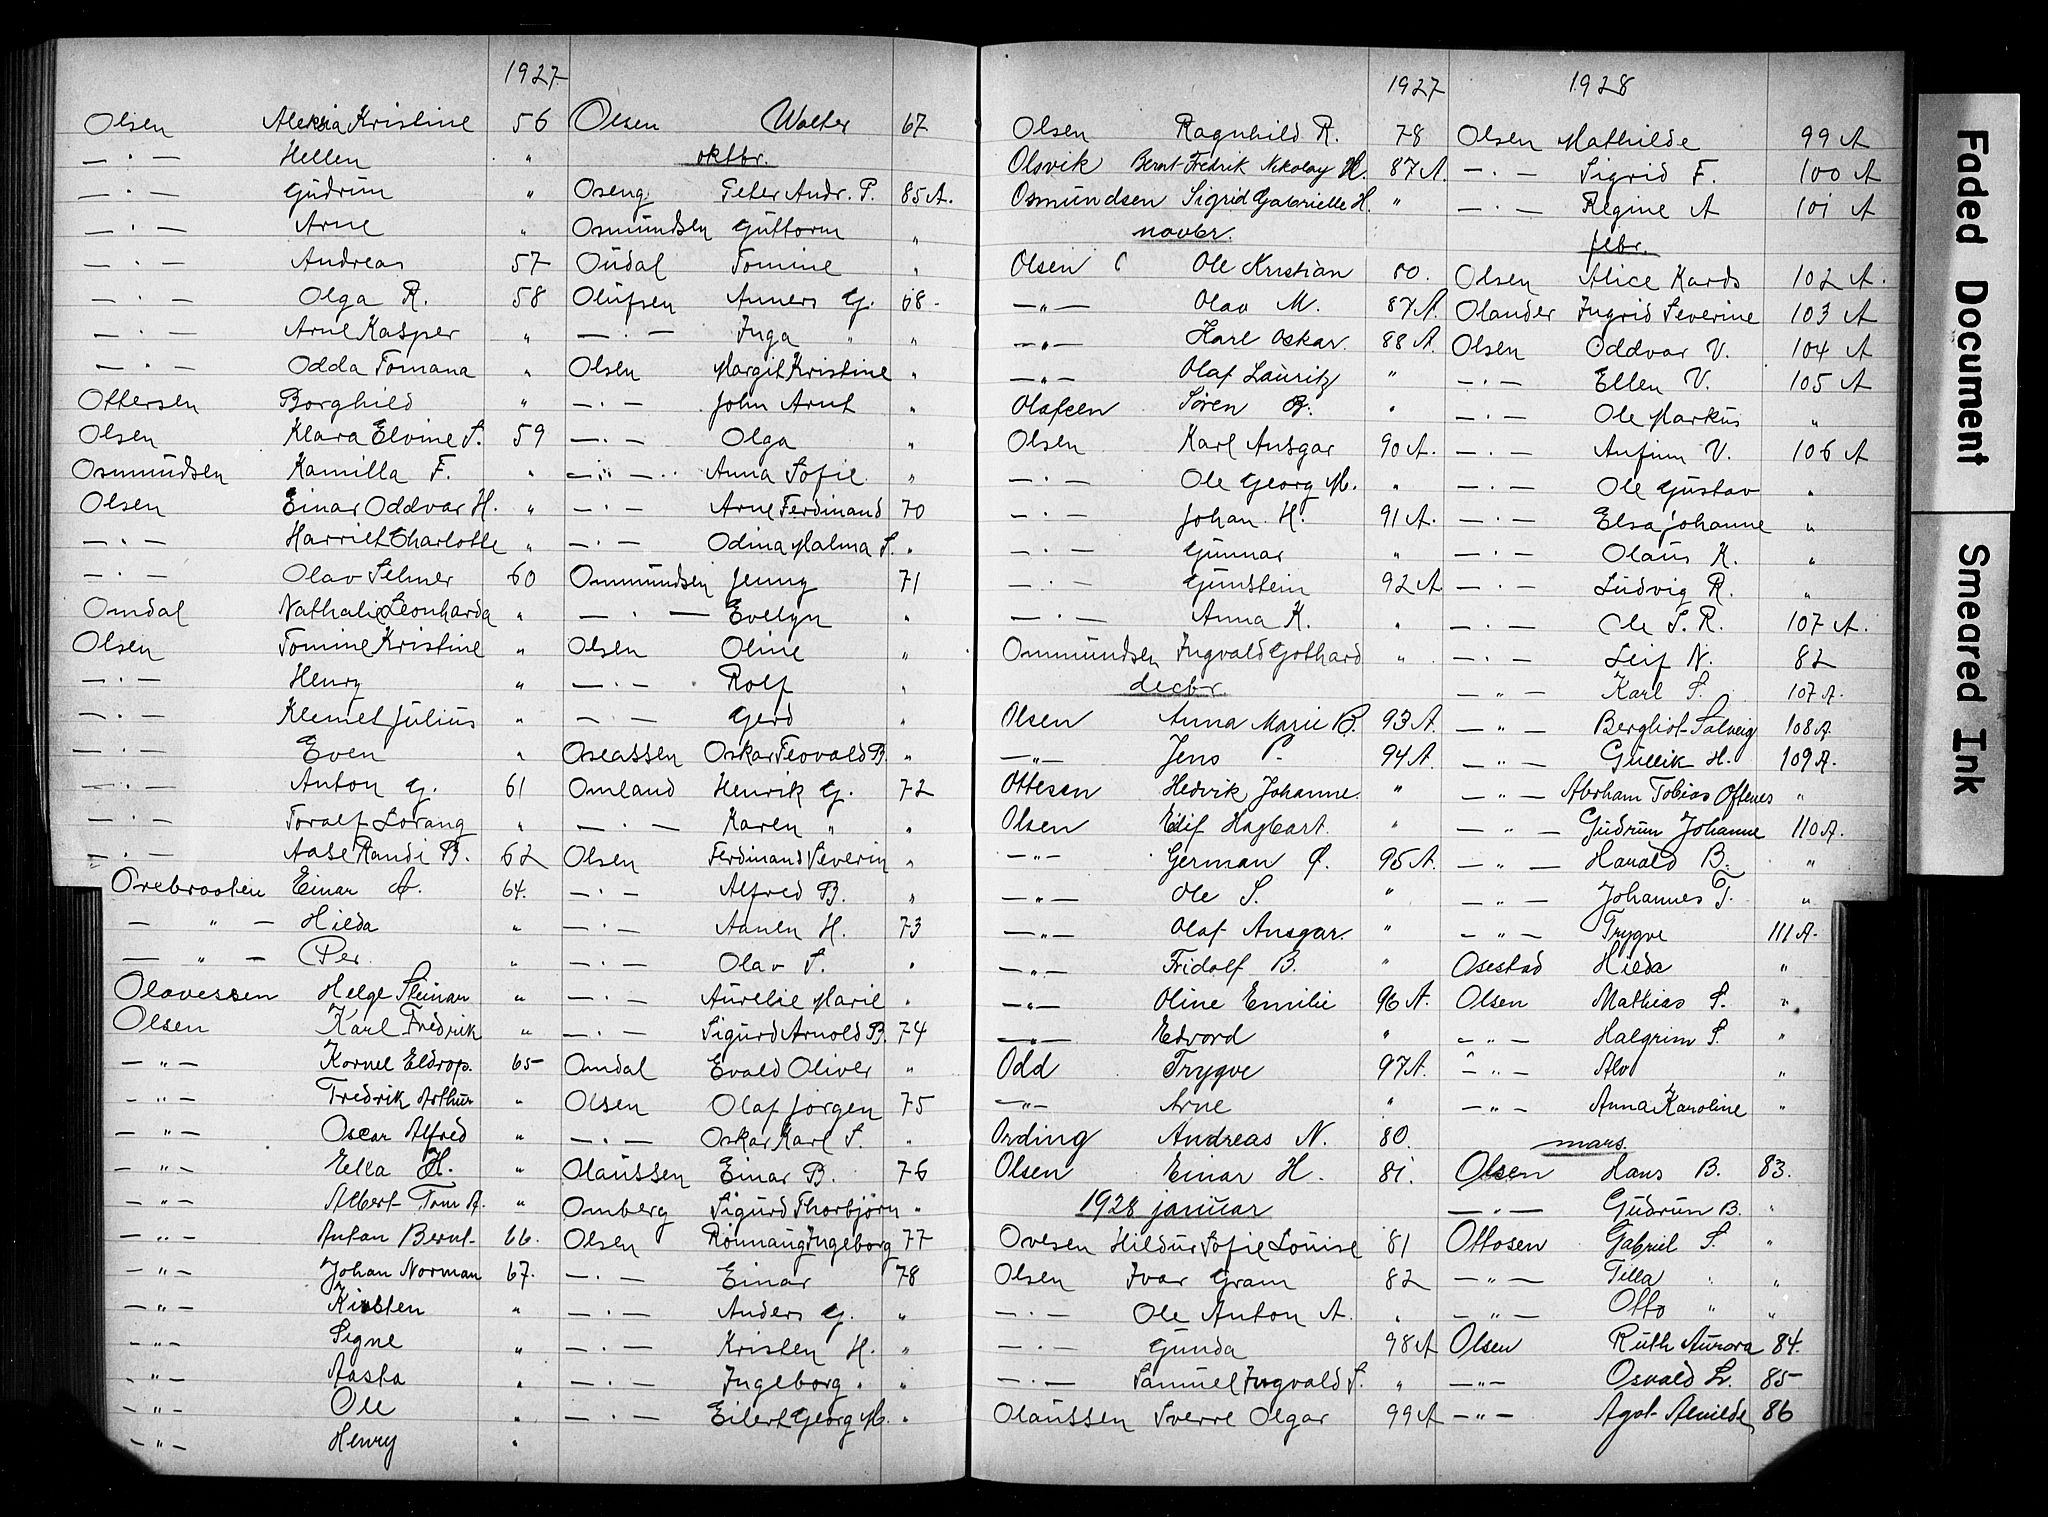 1927
Olsen Aleksia Kristine 56
— · — Hellen "
— · — Gudrun "
— · — Arne "
— · — Andreas 57
— · — Olga R. 58
— · — Arne Kasper "
— · — Odda Tomana "
Ottersen Borghild "
Olsen Klara Elvine S. 59
Osmundsen Kamilla F. "
Olsen Einar Oddvar H. "
— · — Harriet Charlotte "
— · — Olav Selmer 60
Omdal Nathalie Leonharda "
Olsen Tomine Kristine "
— · — Henry "
— · — Klemet Julius "
— · — Even "
— · — Anton G. 61
— · — Toralf Lorang "
— · — Aase Randi B. 62
Orebraaten Einar A. 64.
— " — Hilda "
— " — Per. "
Olavessen Helge Steinar "
Olsen Karl Fredrik "
— " — Kornel Eldrop. 65
— " — Fredrik Arthur "
— " — Oscar Alfred "
— " — Ella H. "
— " — Albert Tom A. "
— " — Anton Bernt 66.
— " — Johan Norman 67.
— " — Kirsten "
— " — Signe "
— " — Aasta "
— " — Ole "
— " — Henry "
Olsen Walter 67
oktbr.
Oseng Peter Andr. P. 85 A.
Osmundsen Guttorm "
Oudal Tomine "
Olufsen Anners G. 68.
— · — Inga " "
Olsen Margit Kristine "
— · — John Arnt "
— · — Olga "
— · — Anna Sofie "
— · — Arne Ferdinand 70
— · — Odina Malma S. "
Ommundsen Jenny 71
— · — Evelyn "
Olsen Oline "
— · — Rolf "
— · — Gerd "
Oseassen Oskar Teovald B. "
Omland Henrik G. 72
— · — Karen " "
Olsen Ferdinand Severin "
— · — Alfred B. "
— · — Aanen H. 73
— · — Olav S. "
— · — Aurelie Marie "
— · — Sigurd Arnold B. 74
Omdal Evald Oliver "
Olsen Olaf Jørgen 75
— · — Oskar Karl S. "
Olaussen Einar B. 76
Omberg Sigurd Thorbjørn "
Olsen Rønnaug Ingeborg 77
— · — Einar 78
— · — Anders G. "
— · — Kristen H. "
— · — Ingeborg "
— · — Eilert Georg M. "
1927
Olsen Ragnhild R. 78
Olsvik Bernt Fredrik Nikolay H. 87 A.
Osmundsen Sigrid Gabrielle H. "
novbr.
Olsen Ole Kristian 80.
— " — Olav M. 87 A.
— " — Karl Oskar 88 A.
— " — Olaf Lauritz "
Olafsen Søren B. "
Olsen Karl Ansgar 90 A.
— · — Ole Georg M. "
— · — Johan H. 91 A.
— · — Gunnar "
— · — Gunstein 92 A
— · — Anna K. "
Ommundsen Ingvald Gothard "
decbr
Olsen Anna Marie B. 93 A.
— " — Jens P. 94 A.
Ottesen Hedvik Johanne. "
Olsen Edif Hagbart. "
— " — German O. 95 A.
— " — Ole S. "
— " — Olaf Ansgar. "
— " — Fridolf B. "
— " — Oline Emilie 96 A.
— " — Edvard "
Odd Trygve 97 A.
— " — Arne "
Ording Andreas N. 80.
Olsen Einar H. 81.
1928 januar
Ovesen Hildur Sofie Louise 81
Olsen Ivar Gram 82
— · — Ole Anton A. "
— · — Gunda 98 A
— · — Samuel Ingvald S. "
Olaussen Sverre Olgar 99 A
1928
Olsen Mathilde 99 A
— · — Sigrid F. 100 A
— · — Regine A 101 A
febr.
Olsen Alice Kards 102 A.
Olander Ingrid Severine 103 A
Olsen Oddvar V. 104 A
— · — Ellen V. 105 A
— · — Ole Markus "
— · — Anfinn V. 106 A
— · — Ole Gustav "
— · — Elsa Johanne "
— · — Olaus K. "
— · — Ludvig R. "
— · — Ole S. R. 107 A.
— · — Leif N. 82
— " — Karl S. 107 A.
— " — Bergliot Solveig 108 A.
— " — Gullik H. 109 A.
— " — Abraham Tobias Oftenes "
— " — Gudrun Johanne 110 A.
— " — Harald B. "
— " — Johannes T. "
— " — Trygve 111 A.
Osestad Hilda "
Olsen Mathias S. "
— " — Halgrim S. "
— " — Alv "
— " — Anna Karoline "
mars
Olsen Hans B. 83.
— " — Gudrun B. "
Ottosen Gabriel S. "
— " — Tilla " "
— " — Otto " "
Olsen Ruth Aurora 84.
— " — Osvald L. 85
— " — Agot Alvilde 86
Faded Document
Smeared Ink